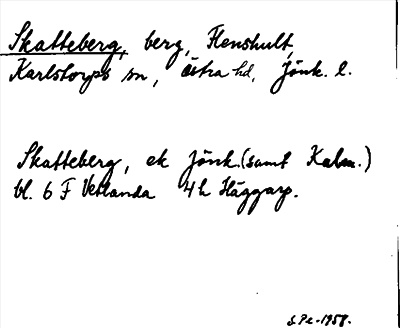 Skatteberg, berg, Flenshult,
Karlstorps sn, östra hd, Jönk. l.
Skatteberg, ek Jönk. (samt Kalm.)
bl. 6 F Vetlanda 4h Häggarp.
S.Pe. 1958.